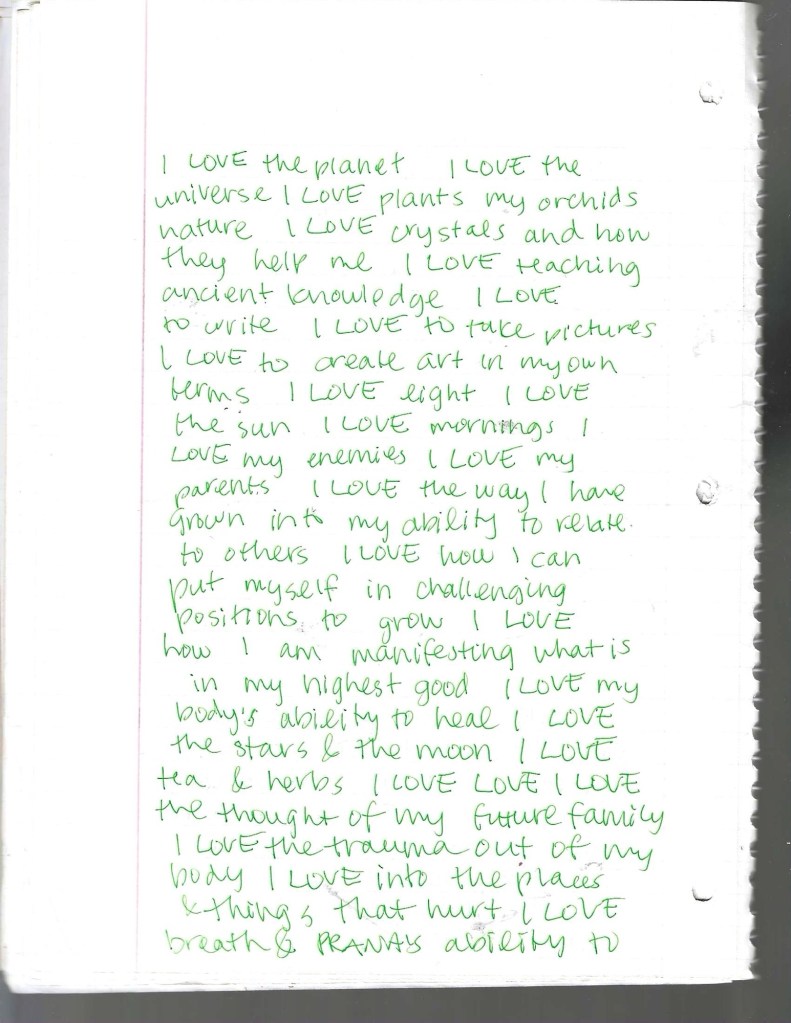 I LOVE the planet I LOVE the
universe I LOVE plants my orchids
nature I LOVE crystals and how
they help me I LOVE teaching
ancient knowledge I LOVE
to write I LOVE to take pictures
I LOVE to create art in my own
terms I LOVE light I LOVE
the sun I LOVE mornings I
LOVE my enemies I LOVE my
parents I LOVE the way I have
grown into my ability to relate
to others I LOVE how I can
put myself in challenging
positions to grow I LOVE
how I am manifesting what is
in my highest good I LOVE my
body's ability to heal I LOVE
the stars & the moon I LOVE
tea & herbs I LOVE LOVE I LOVE
the thought of my future family
I LOVE the trauma out of my
body I LOVE into the places
& things that hurt I LOVE
breath & PRANA'S ability to